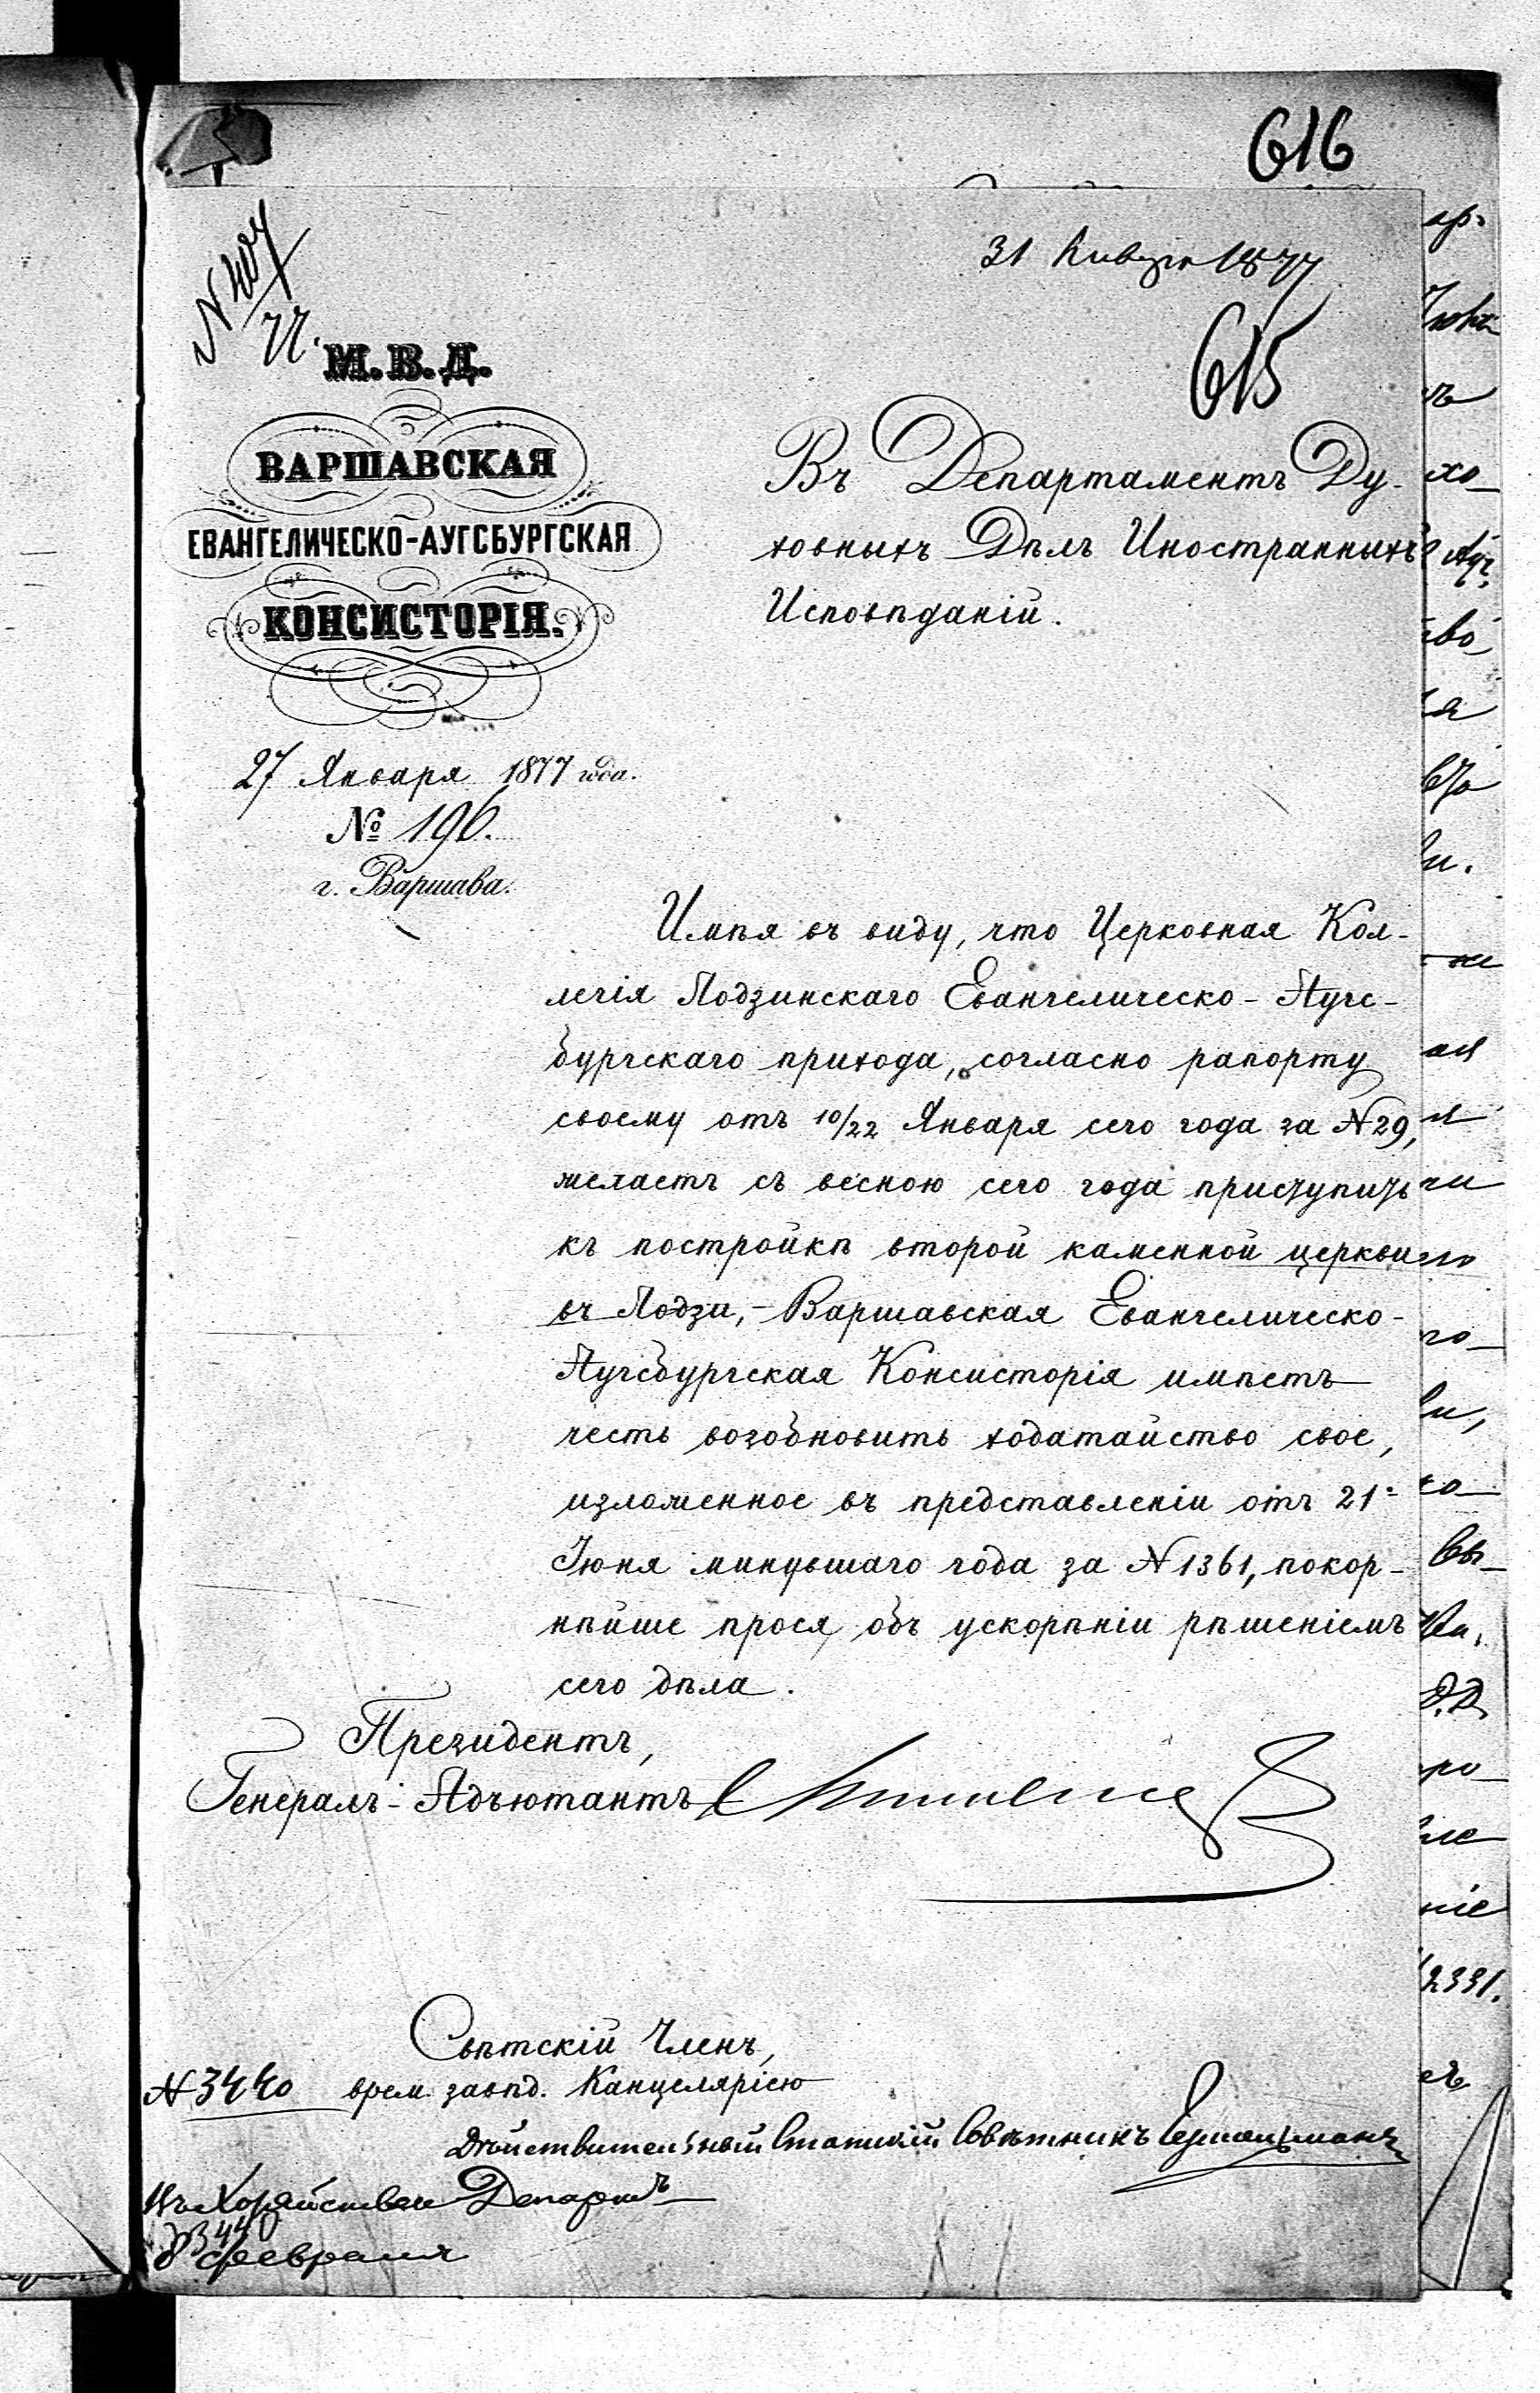 616
31 Января 1877
N 407/77.
615
М. В. Д.
ВАРШАВСКАЯ
ЕВАНГЕЛИЧЕСКО-АУГСБУРГСКАЯ
КОНСИСТОРІЯ.
27 Января 1877 года.
№ 196.
г. Варшава.
Въ Департаментъ Ду-
ховныхъ Дѣлъ Иностранныхъ
Исповѣданій.
Имѣя въ виду, что Церковная Кол-
легія Лодзинскаго Евангелическо-Аугс-
бургскаго прихода, согласно рапорту
своему отъ 10/22 Января сего года за N 29,
желаетъ съ весною сего года приступить
къ постройкѣ второй каменной церкви
въ Лодзи, - Варшавская Евангелическо-
Аугсбургская Консисторія имѣетъ
честь возобновить ходатайство свое,
изложенное въ представленіи отъ 21-
Іюня минувшаго года за N 1361, покор-
нѣйше прося, объ ускорѣніи рѣшеніемъ
сего дѣла.
Президентъ,
Генералъ-Адъютантъ
Свѣтскій Членъ,
N 3440 врем. завѣд. Канцеляріею
Дѣйствительный Статскій Совѣтникъ
Въ Хозяйствен Департ-ъ
3440
8 февраля
хо-
ая
го-
ро-
ніе
2331.